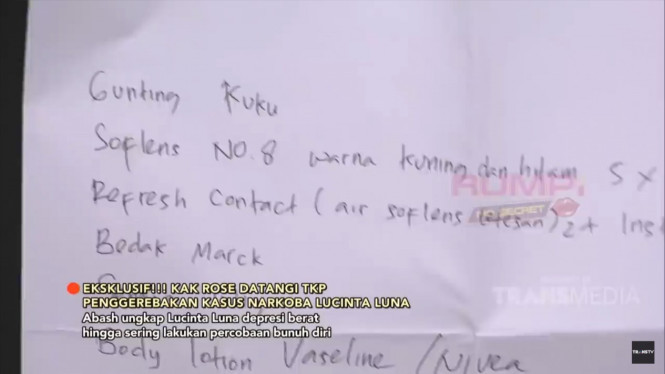 Gunting Kuku
Soflens NO.8 warna kuning dan hitam 5 x
Refresh Contact ( air soflens tetesan) 2x Ins
RUMPI
NO SECRET
Bedak Marck
TRANSMEDIA
EKSKLUSIF!!! KAK ROSE DATANGI TKP
PENGGEREBAKAN KASUS NARKOBA LUCINTA LUNA
Abash ungkap Lucinta Luna depresi berat
hingga sering lakukan percobaan bunuh diri
Body lotion Vaseline / Nivea
TRANSTV